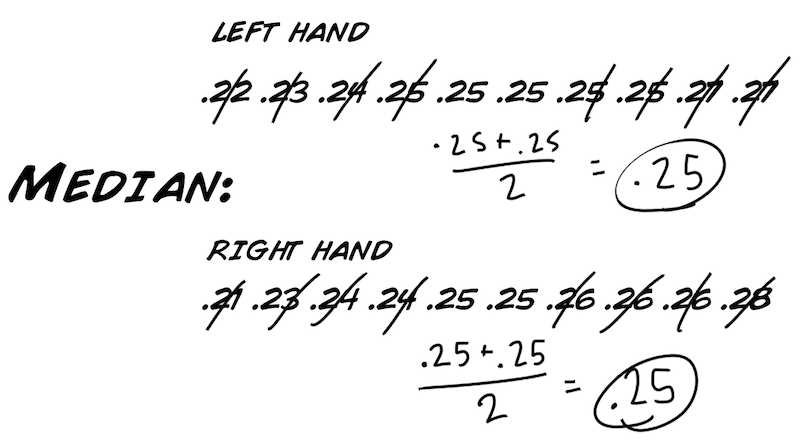 LEFT HAND
.22 .23 .24 .25 .25 .25 .25 .25 .27 .27
.25 + .25
2
= .25
MEDIAN:
RIGHT HAND
.21 .23 .24 .24 .25 .25 .26 .26 .26 .28
.25 + .25
2
= .25